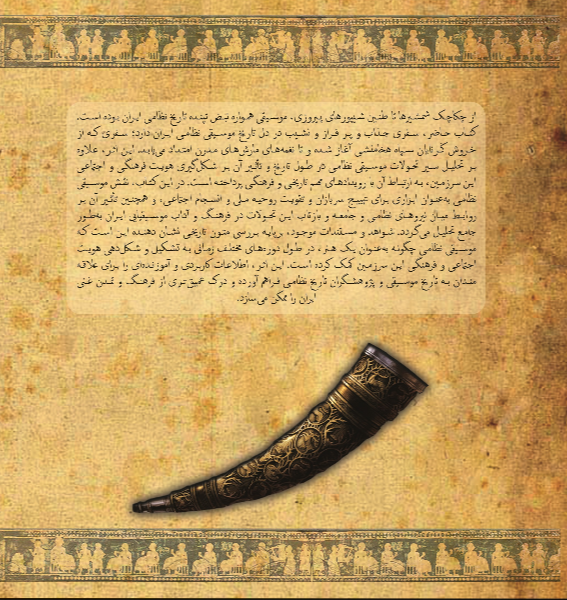 از چکاچک شمشیرها تا طنین شیپورهای پیروزی، موسیقی همواره نبض تپنده تاریخ نظامی ایران بوده است.
کتاب حاضر، سفری جذاب و پر فراز و نشیب در دل تاریخ موسیقی نظامی ایران دارد؛ سفری که از
خروش کرنایان سپاه هخامنشی آغاز شده و تا نغمه‌های مارش‌های مدرن امتداد می‌یابد. این اثر، علاوه
بر تحلیل سیر تحولات موسیقی نظامی در طول تاریخ و تأثیر آن بر شکل‌گیری هویت فرهنگی و اجتماعی
این سرزمین، به ارتباط آن با رویدادهای مهم تاریخی و فرهنگی پرداخته است. در این کتاب، نقش موسیقی
نظامی به‌عنوان ابزاری برای تهییج سربازان و تقویت روحیه ملی و انسجام اجتماعی، و همچنین تأثیر آن بر
روابط میان نیروهای نظامی و جامعه و بازتاب این تحولات در فرهنگ و آداب موسیقیایی ایران به‌طور
جامع تحلیل می‌گردد. شواهد و مستندات موجود، برپایه بررسی متون تاریخی نشان دهنده این است که
موسیقی نظامی چگونه به‌عنوان یک هنر، در طول دوره‌های مختلف زمانی به تشکیل و شکل‌دهی هویت
اجتماعی و فرهنگی این سرزمین کمک کرده است. این اثر، اطلاعات کاربردی و آموزنده‌ای را برای علاقه
مندان به تاریخ موسیقی و پژوهشگران تاریخ نظامی فراهم آورده و درک عمیق‌تری از فرهنگ و تمدن غنی
ایران را ممکن می‌سازد.